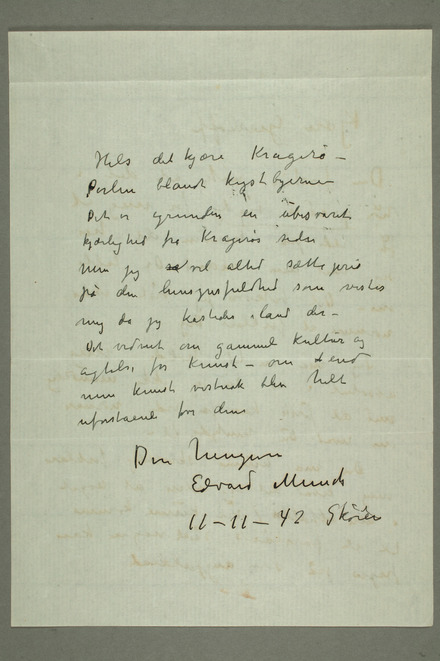 Hils det kjære Kragerø –
Perlen blandt kystbyerne
Det er grunden en ubesvaret
kjærlighed fra Kragerøs side
men jeg vil altid sætte pris
på den hensynsfuldhed som vistes
mig da jeg kastedes iland der –
Det vidnet om gammel kultur og
agtelse for kunst – om end
min kunst vistnok blev helt
uforstaaet for dem
Din hengivne
Edvard Munch
11–11–42 Skøien